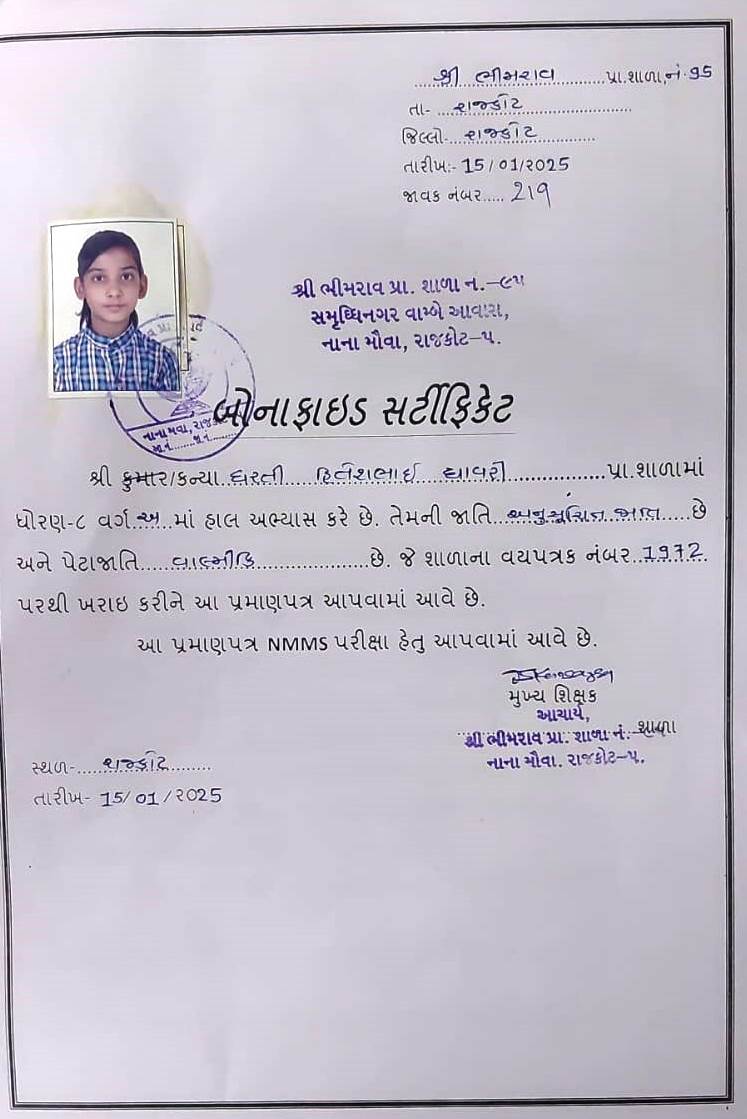 શ્રી ભીમરાવ પ્રા.શાળા,નં.95
તા- રાજકોટ
જિલ્લો- રાજકોટ
તારીખ:- 15/01/2025
જાવક નંબર..... 219
શ્રી ભીમરાવ પ્રા. શાળા નં.–૯૫
સમૃધ્ધિનગર વામ્બે આવાસ,
નાના મૌવા, રાજકોટ–પ.
નાનામવા, રાજકો
બોનાફાઇડ સર્ટીફિકેટ
શ્રી કુમાર/કન્યા ધરતી હિતેશભાઈ ધાવરી પ્રા.શાળામાં
ધોરણ-૮ વર્ગ અ માં હાલ અભ્યાસ કરે છે. તેમની જાતિ અનુસૂચિત જાતિ છે
અને પેટાજાતિ વાલ્મીકિ છે. જે શાળાના વયપત્રક નંબર 1972
પરથી ખરાઇ કરીને આ પ્રમાણપત્ર આપવામાં આવે છે.
આ પ્રમાણપત્ર NMMS પરીક્ષા હેતુ આપવામાં આવે છે.
મુખ્ય શિક્ષક
આચાર્ય,
શ્રી ભીમરાવ પ્રા. શાળા નં.
નાના મૌવા. રાજકોટ–પ.
સ્થળ- રાજકોટ
તારીખ- 15/01/2025